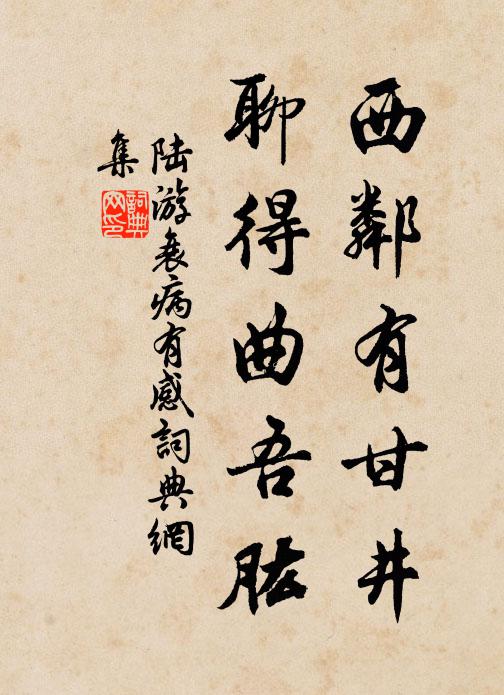 西鄰有甘井
聊得曲吾肱
陆游衰病有感詞典網
集
詞典
网印